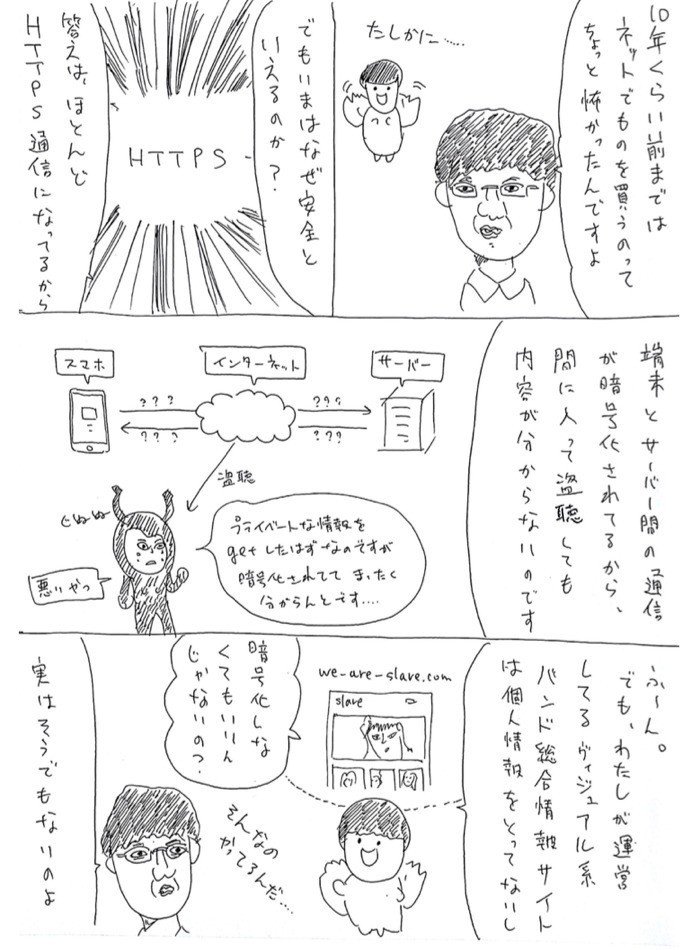 10年くらい前までは
ネットでものを買うのって
ちょっと怖かったんですよ
たしかに……
でもいまはなぜ安全と
いえるのか?
HTTPS
答えは、ほとんど
HTTPS通信になってるから
端末とサーバー間の通信
が暗号化されてるから、
間に入って盗聴しても
内容が分からないのです
スマホ
インターネット
サーバー
???
???
???
???
盗聴
ぐぬぬ
悪いやつ
プライベートな情報を
getしたはずなのですが
暗号化されてて まったく
分からんとです....
ふ〜ん。
でも、わたしが運営
してるヴィジュアル系
バンド総合情報サイト
は個人情報をとってないし
we-are-slave.com
slave
暗号化しな
くてもいいん
じゃないの?
そんなの
やってるんだ…
実はそうでもないのよ